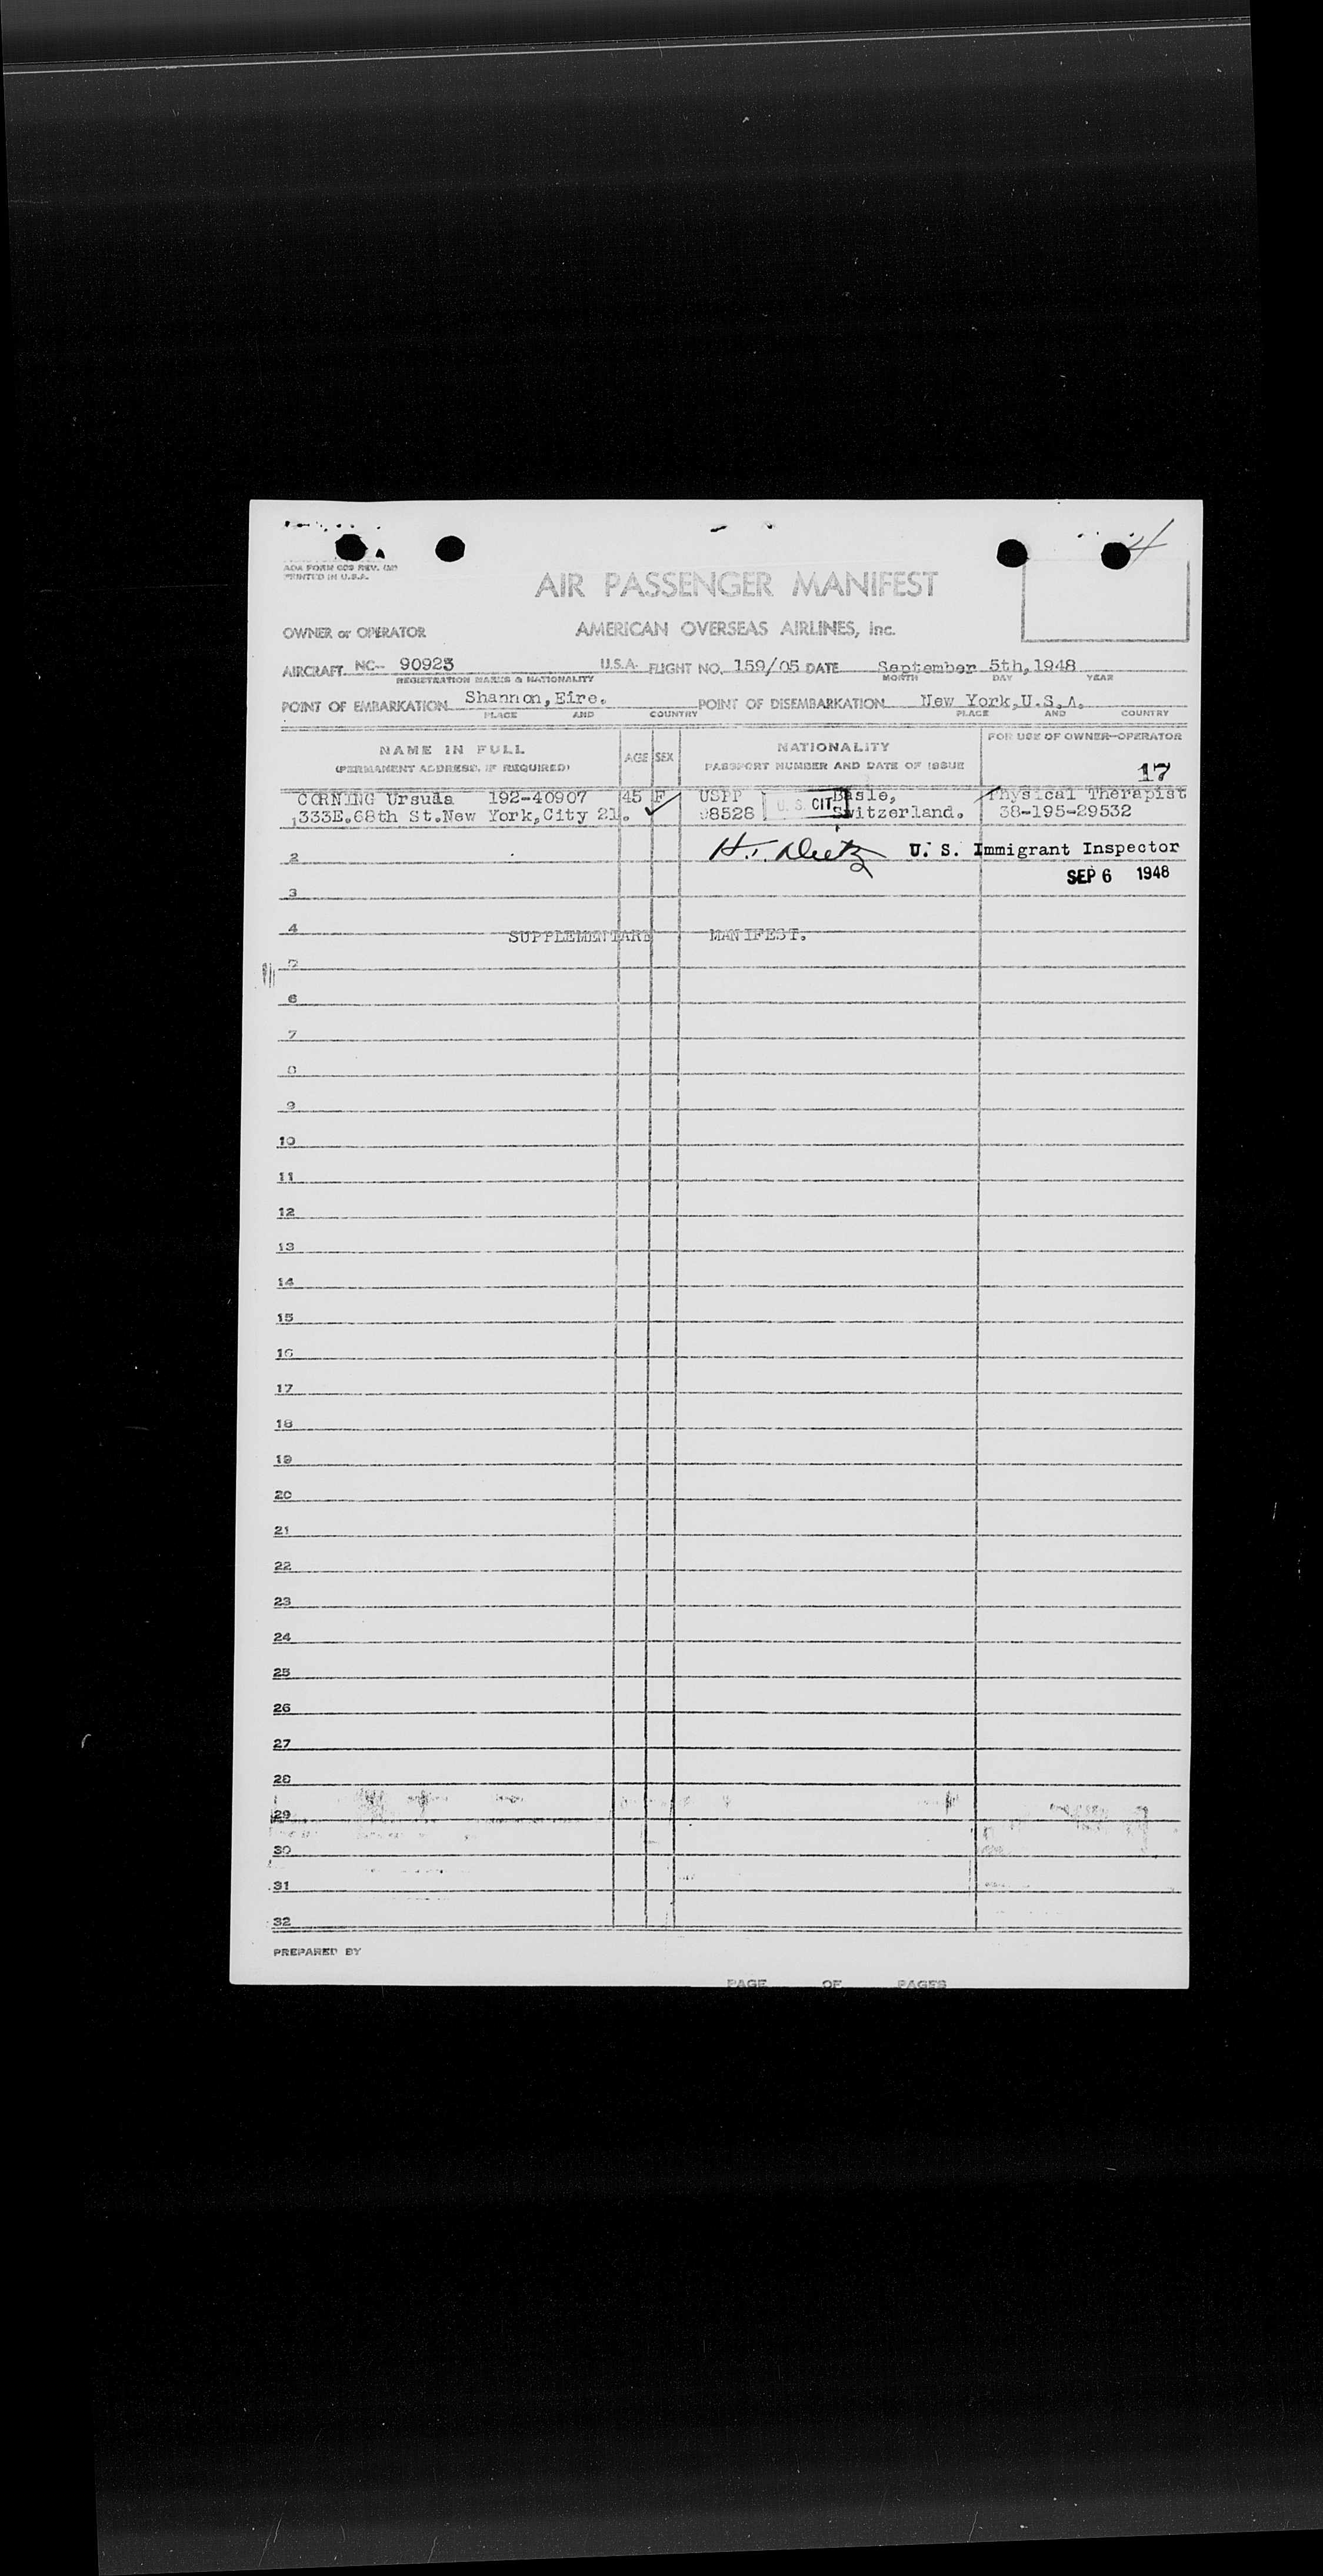 4
PRINTED IN U.S.A.
AIR PASSENGER MANIFEST
OWNER or OPERATOR AMERICAN OVERSEAS AIRLINES, Inc.
AIRCRAFT NC-- 90923 U.S.A. FLIGHT NO. 159/05 DATE September 5th,1948
REGISTRATION MARKS & NATIONALITY MONTH DAY YEAR
POINT OF EMBARKATION Shannon,Eire. POINT OF DISEMBARKATION New York,U.S.A.
PLACE AND COUNTRY PLACE AND COUNTRY
NAME IN FULL AGE SEX NATIONALITY FOR USE OF OWNER-OPERATOR
(PERMANENT ADDRESS, IF REQUIRED) PASSPORT NUMBER AND DATE OF ISSUE 17
CORNING Ursula 192-40907 45 F USPP U. S. CIT Basle, Physical Therapist
1 333E.68th St.New York,City 21. 98528 Switzerland. 38-195-29532
2 H. Dietz U. S. Immigrant Inspector
SEP 6 1948
3
4 SUPPLEMENTARE MANIFEST.
5
6
7
8
9
10
11
12
13
14
15
16
17
18
19
20
21
22
23
24
25
26
27
28
29
30
31
32
PREPARED BY
PAGE OF PAGES